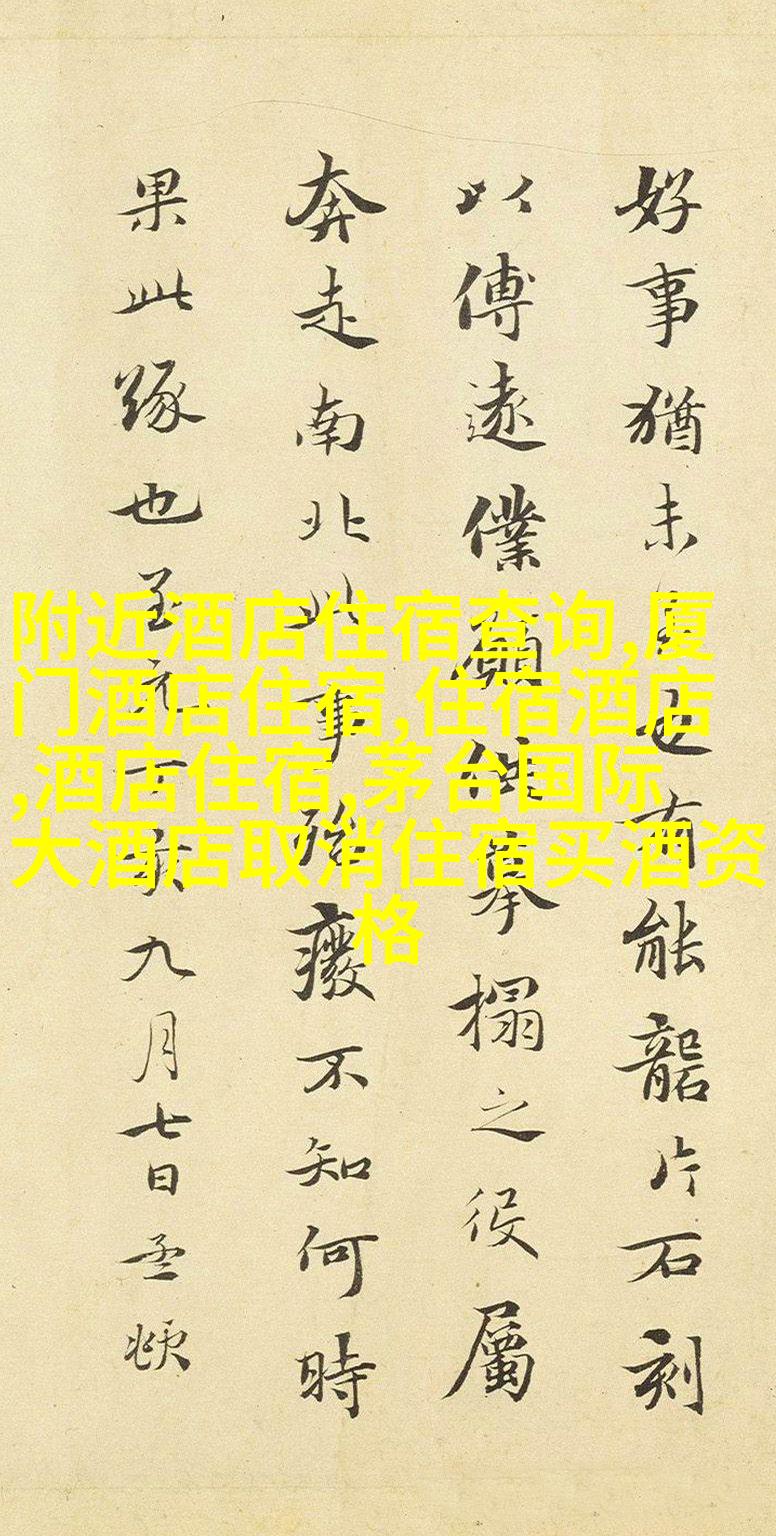 好事猶未也有能礱片石刻
以傳遠僕願供摹搨之役屬
奔走南北此事殆廢不知何時
果此緣也至元丁亥九月七日孟頫
附近酒店住宿查询,厦
门酒店住宿,住宿酒店
,酒店住宿,茅台国际
大酒店取消住宿买酒资
格